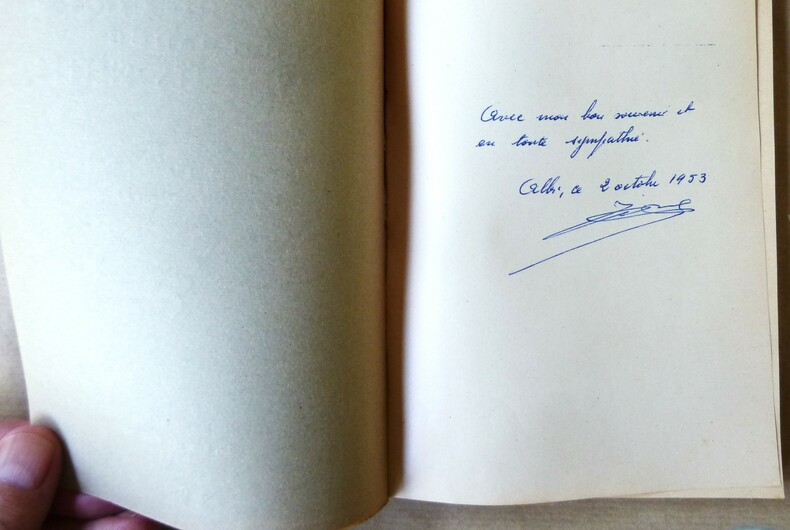 Avec mon bon souvenir et
en toute sympathie.
Albi, ce 2 octobre 1953